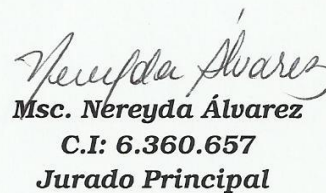 Nereyda Álvarez
Msc. Nereyda Álvarez
C.I: 6.360.657
Jurado Principal